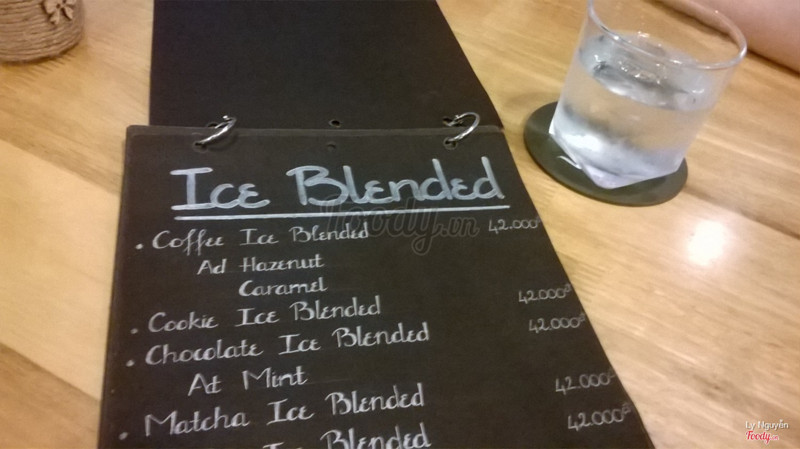 Ice Blended
• Coffee Ice Blended 42.000đ
Ad Hazenut
Caramel
• Cookie Ice Blended 42.000đ
• Chocolate Ice Blended 42.000đ
At Mint
• Matcha Ice Blended 42.000đ
Ice Blended 42.000đ
foody.vn
Ly Nguyễn
Foody.vn